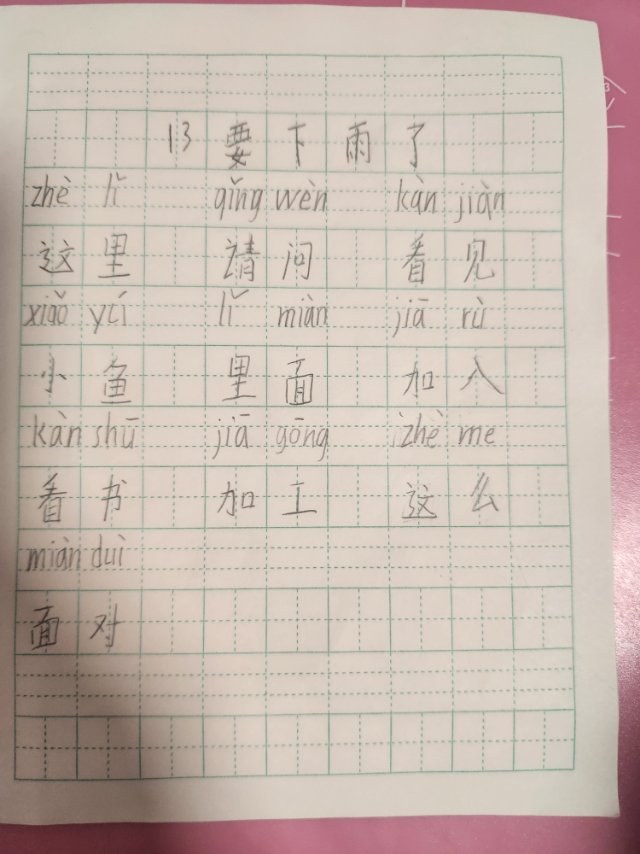 13 要下雨了
zhè lǐ qǐng wèn kàn jiàn
这里 请问 看见
xiǎo yú lǐ miàn jiā rù
小鱼 里面 加入
kàn shū jiā gōng zhè me
看书 加工 这么
miàn duì
面对